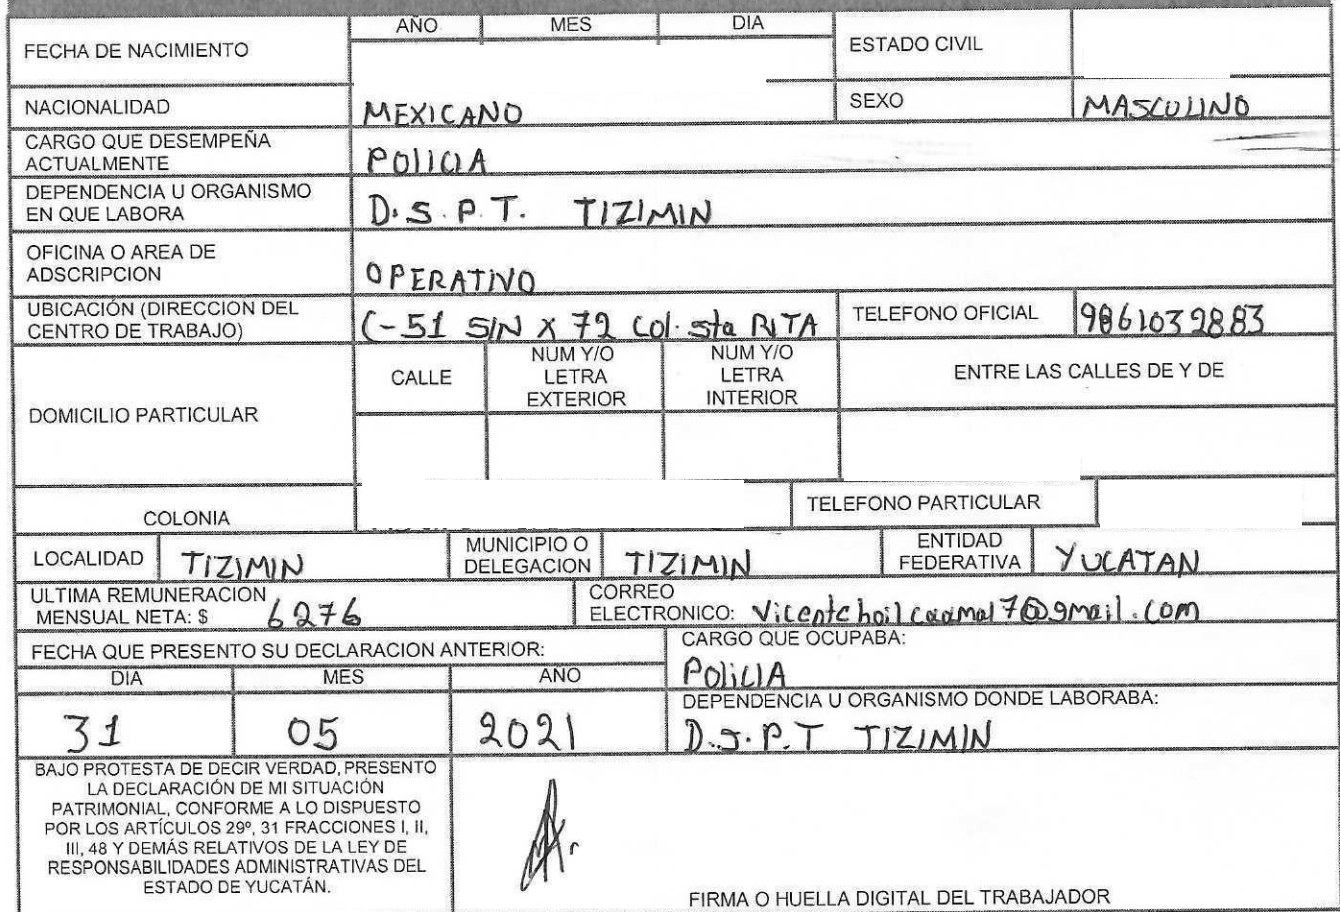 AÑO MES DIA
FECHA DE NACIMIENTO ESTADO CIVIL
NACIONALIDAD MEXICANO SEXO MASCULINO
CARGO QUE DESEMPEÑA
ACTUALMENTE POLICIA
DEPENDENCIA U ORGANISMO
EN QUE LABORA D.S.P.T. TIZIMIN
OFICINA O AREA DE
ADSCRIPCION OPERATIVO
UBICACIÓN (DIRECCION DEL
CENTRO DE TRABAJO) C-51 S/N X 72 Col. sta RITA TELEFONO OFICIAL 9861032883
DOMICILIO PARTICULAR
CALLE
NUM Y/O
LETRA
EXTERIOR
NUM Y/O
LETRA
INTERIOR
ENTRE LAS CALLES DE Y DE
COLONIA TELEFONO PARTICULAR
LOCALIDAD TIZIMIN
MUNICIPIO O
DELEGACION TIZIMIN
ENTIDAD
FEDERATIVA YUCATAN
ULTIMA REMUNERACION
MENSUAL NETA: $ 6276
CORREO
ELECTRONICO: Vicentchoilcaamal7@gmail.com
FECHA QUE PRESENTO SU DECLARACION ANTERIOR:
DIA MES AÑO
31 05 2021
CARGO QUE OCUPABA:
POliCIA
DEPENDENCIA U ORGANISMO DONDE LABORABA:
D.S.P.T TIZIMIN
BAJO PROTESTA DE DECIR VERDAD, PRESENTO
LA DECLARACIÓN DE MI SITUACIÓN
PATRIMONIAL, CONFORME A LO DISPUESTO
POR LOS ARTÍCULOS 29º, 31 FRACCIONES I, II,
III, 48 Y DEMÁS RELATIVOS DE LA LEY DE
RESPONSABILIDADES ADMINISTRATIVAS DEL
ESTADO DE YUCATÁN.
FIRMA O HUELLA DIGITAL DEL TRABAJADOR